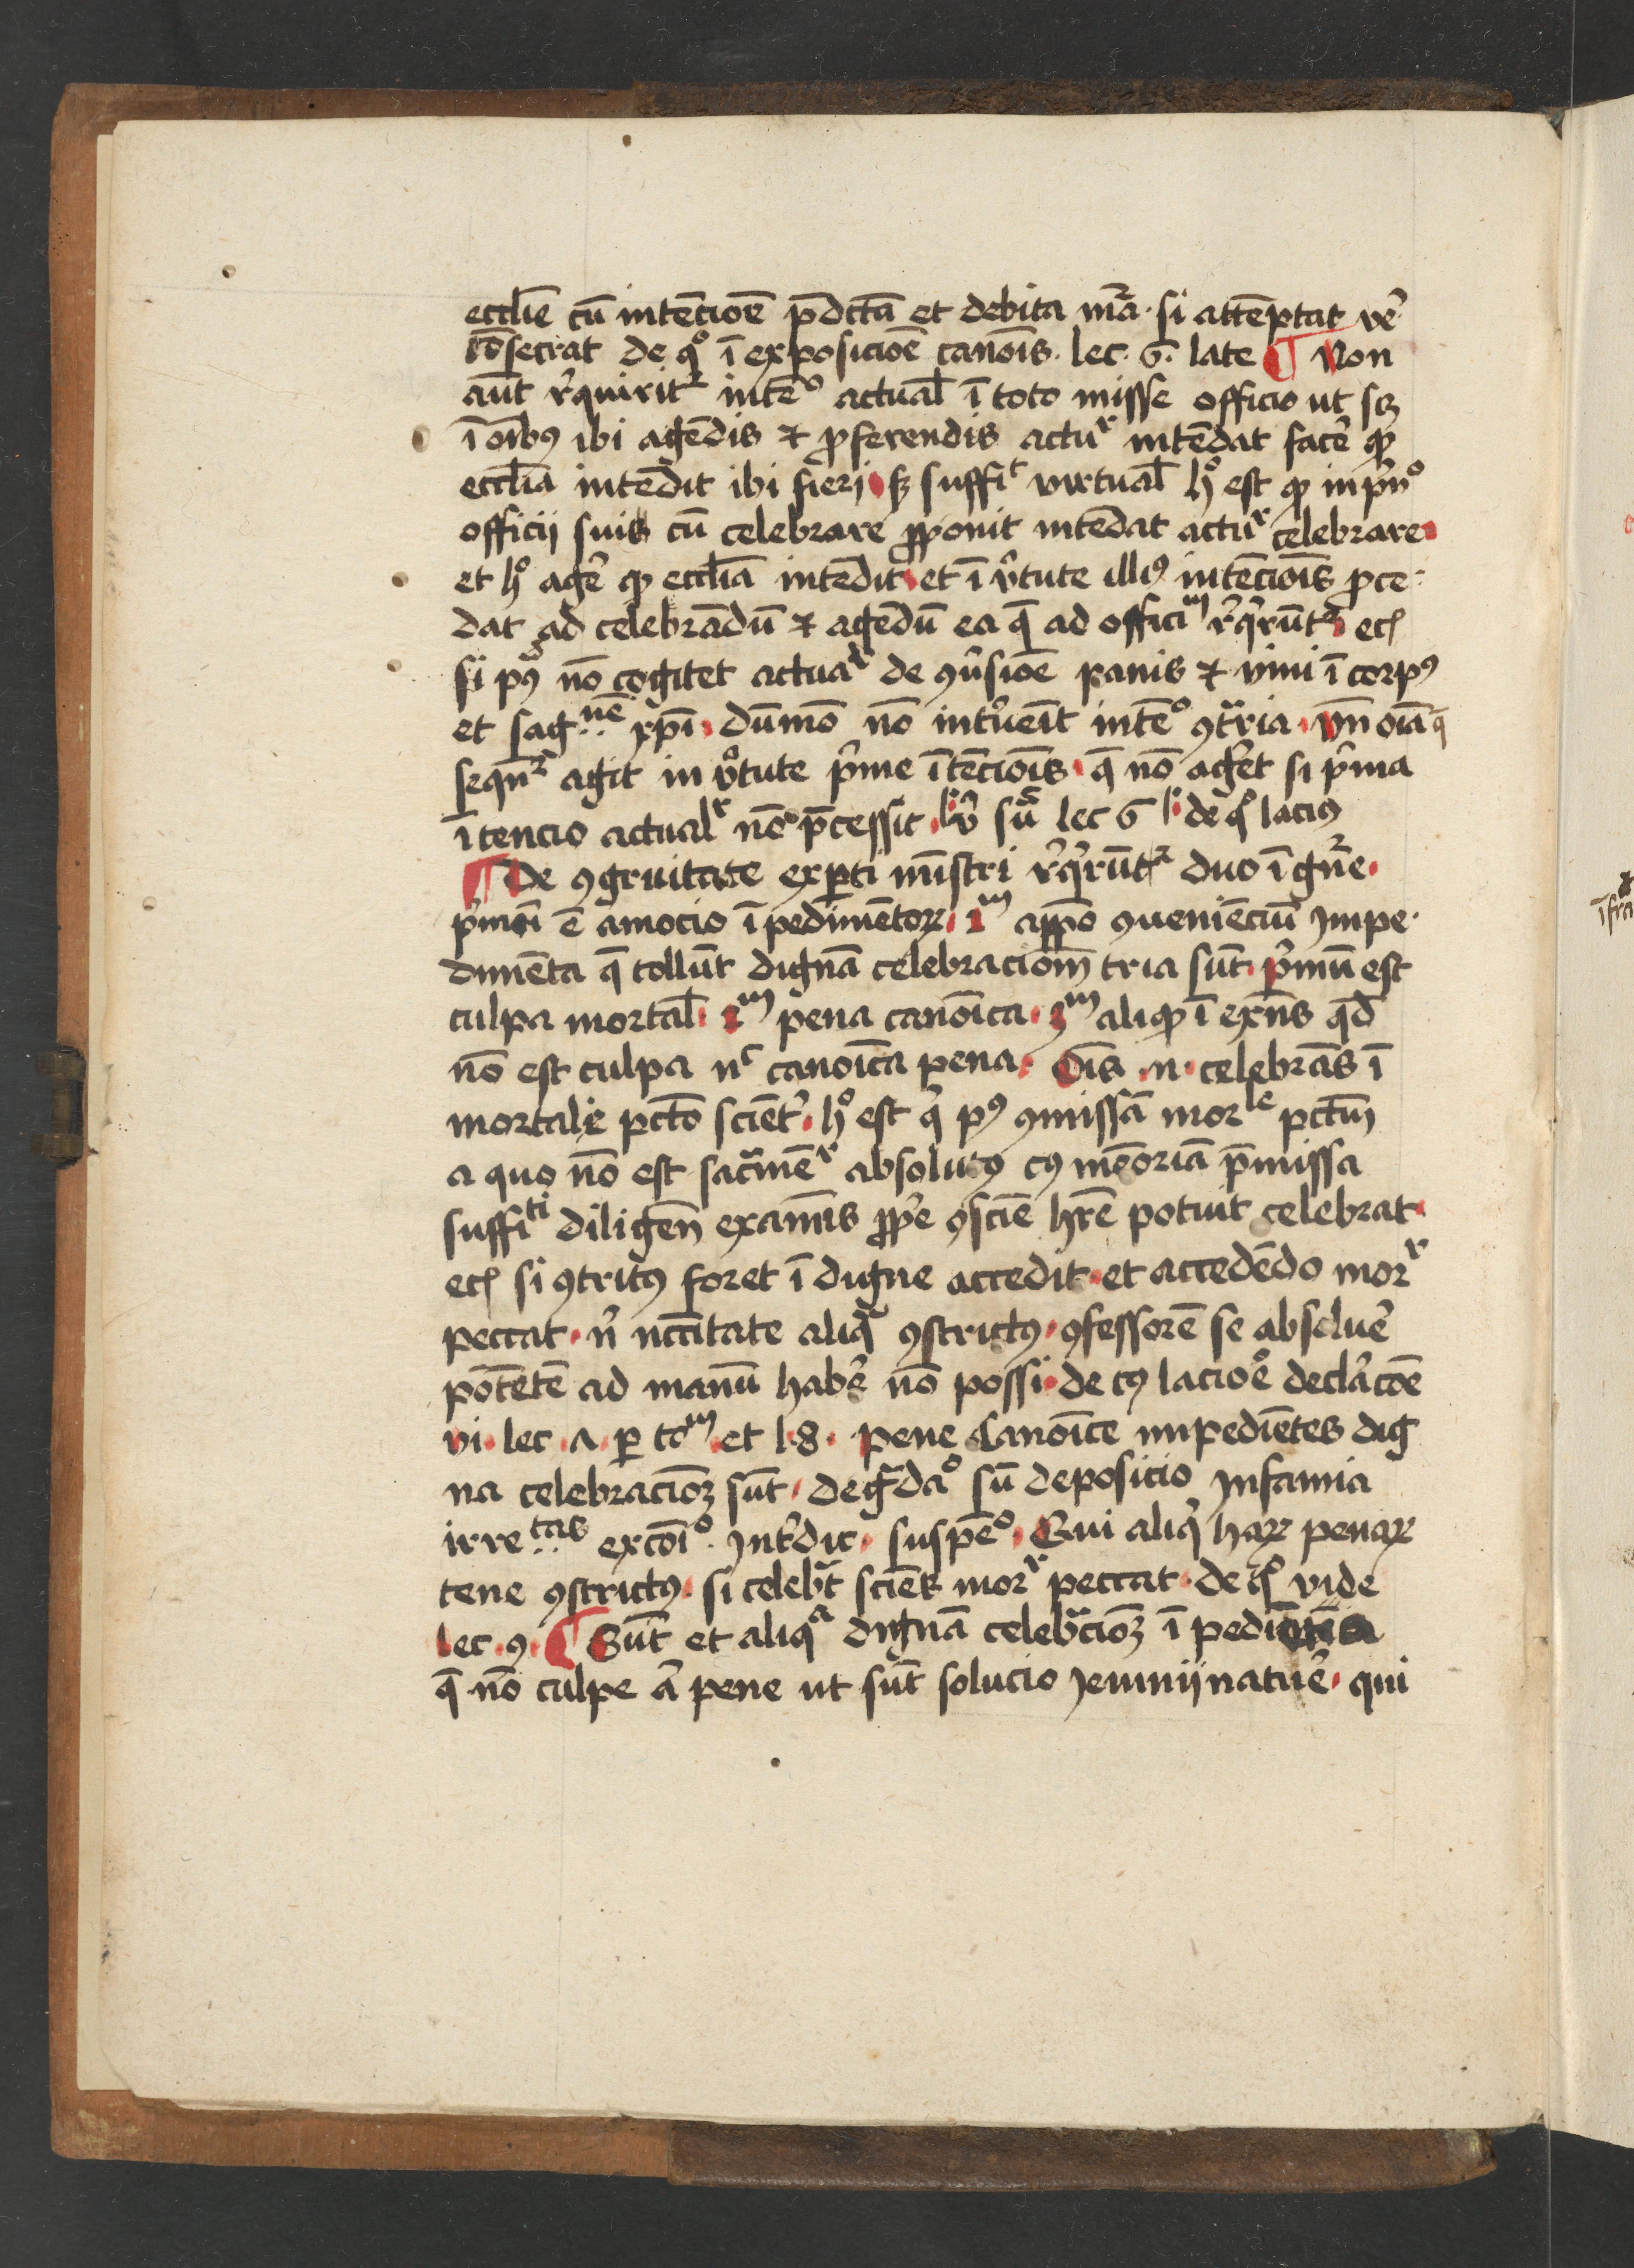 eccl̄ie cū intēcioē p̄dctā et debita mr̄a · si attēptat ue᷑
cōsecrat de qͦ ī exposicioē canoīs · lec · 6 · late ¶ Non
aūt r᷑quiritᷣ intēͦ actual̄ ī toto misse officio ut sꝫ
ī oībꝰ ibi agēdis ⁊ ꝓferendis actuͬ intēdat face᷑ qꝫ
eccl̄ia intēdit ibi fieri · sꝫ suffiᵗ uirtual̄ hͦ est qꝫ in pn̄ͦ
officii suis cū celebrare ꝓponit intēdat actuͬ celebrare
et hͦ age᷑ qꝫ eccl̄ia intēdit · et ī v᷑tute illiꝰ intēcioīs ꝓce-
dat ad celebrādū ⁊ agēdū ea q̄ ad officiᵐ r᷑q᷑rūtᷣ ecꝫ
si pꝰ nō cogitet actuaͬ de ꝯu᷑sioē panis ⁊ vini ī corpꝰ
et sag··nē xp̄i · dūmō nō int᷑ueīt intēͦ ꝯtᷓria · vn̄ oīa q̄
sequn̄ᷣ agit in v᷑tute p᷑me ītēcioīs · q̄ nō age᷑t si p᷑ma
ītencio actualͬ nō p̄cessit · lꝫ v᷑ suᷓ lec 6 l · de qͦ lacius
¶ De ꝯgruitate ex p̱ti mīstri r᷑q᷑rūtᷣ duo ī gn᷑e ·
p᷑mū ē amocio īpedimētoꝝ · 2ᵐ appͦ ꝯueniēciū Impe-
dimēta q̄ tollūt dignā celebracioꝫ tria sūt · p᷑mū est
culpa mortal̄ · 2ᵐ pena canoīca · 3ᵐ aliqꝫ ī exn̄s qd̄
nō est culpa nͨ canoīca pena · Oīs · n · celebrās ī
mortali pctō sciēt᷑ · hͦ est q᷑ pꝰ ꝯmissā morˡᵉ pctm̄
a quo nō est sacᷓmēͬ absolutꝰ cꝰ memoriā p̄missa
suffiᵗⁱ diligen̄ examīs ꝓpe ꝯsciē hr̄e potuit celebrat ·
ecꝫ si ꝯtritꝰ foret ī digne accedit · et accedēdo morͬ
peccat · n᷑ nccītate aliqᷓ ꝯstrictꝰ · ꝯfessorē se absolue᷑
potētē ad manū habe᷑ nō possi · de cꝰ lacioē decla᷑cōe
vi · lec · A · ꝑ totᵐ et l · 8 · pene Canoīce impediētes dig
na celebracioꝫ sūt · degᷓdaͦ sū deposicio Infamia
irre··tas excōiͦ · Int᷑dic · suspēͦ · Qui aliqᷓ haꝝ penaꝝ
tene ꝯstrictꝰ · si celebᷓt sciēt᷑ morͬ peccat · de qͦ vide
lec · 9 · ¶ Sūt et aliqᷓ dignā celebᷓcioꝫ īpediētia
q̄ nō culpe a᷑ pene ut sūt solucio Ieiunii nature᷑ · qui